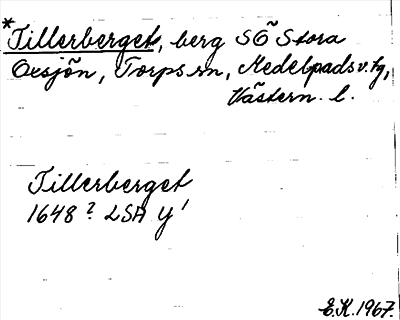 *Tillerberget, berg SÖ Stora
Oxsjön, Torps sn, Medelpads v. tg,
Västern. l.
Tillerberget
1648? LSA Y¹
E.K. 1967.